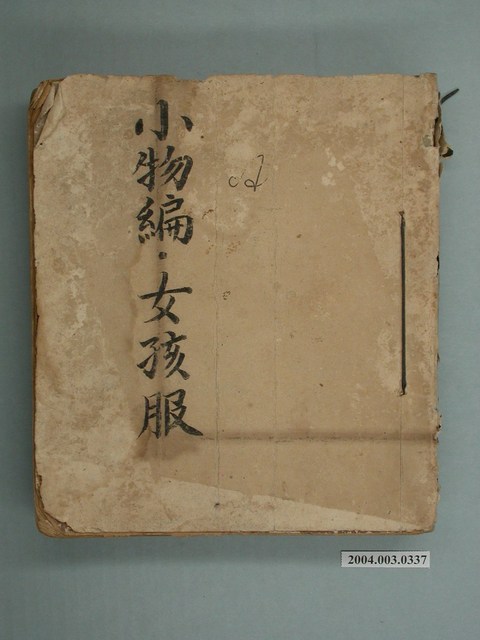 小物編·女孩服
2004.003.0337